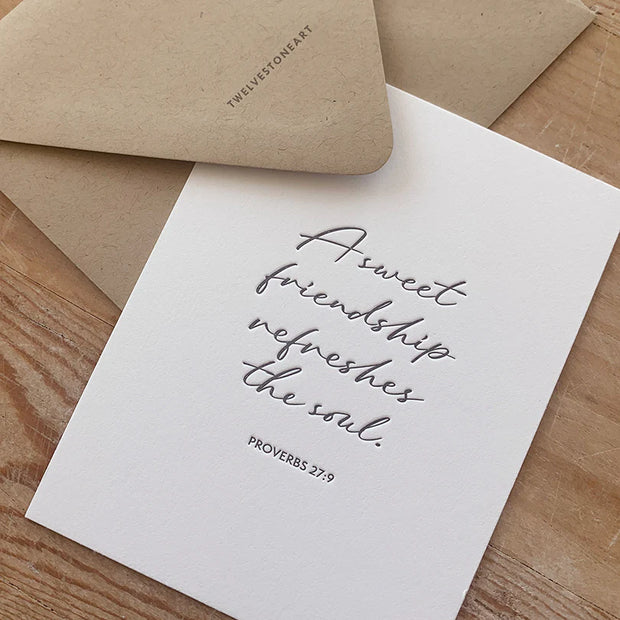 TWELVESTONEART
A sweet
friendship
refreshes
the soul.
PROVERBS 27:9